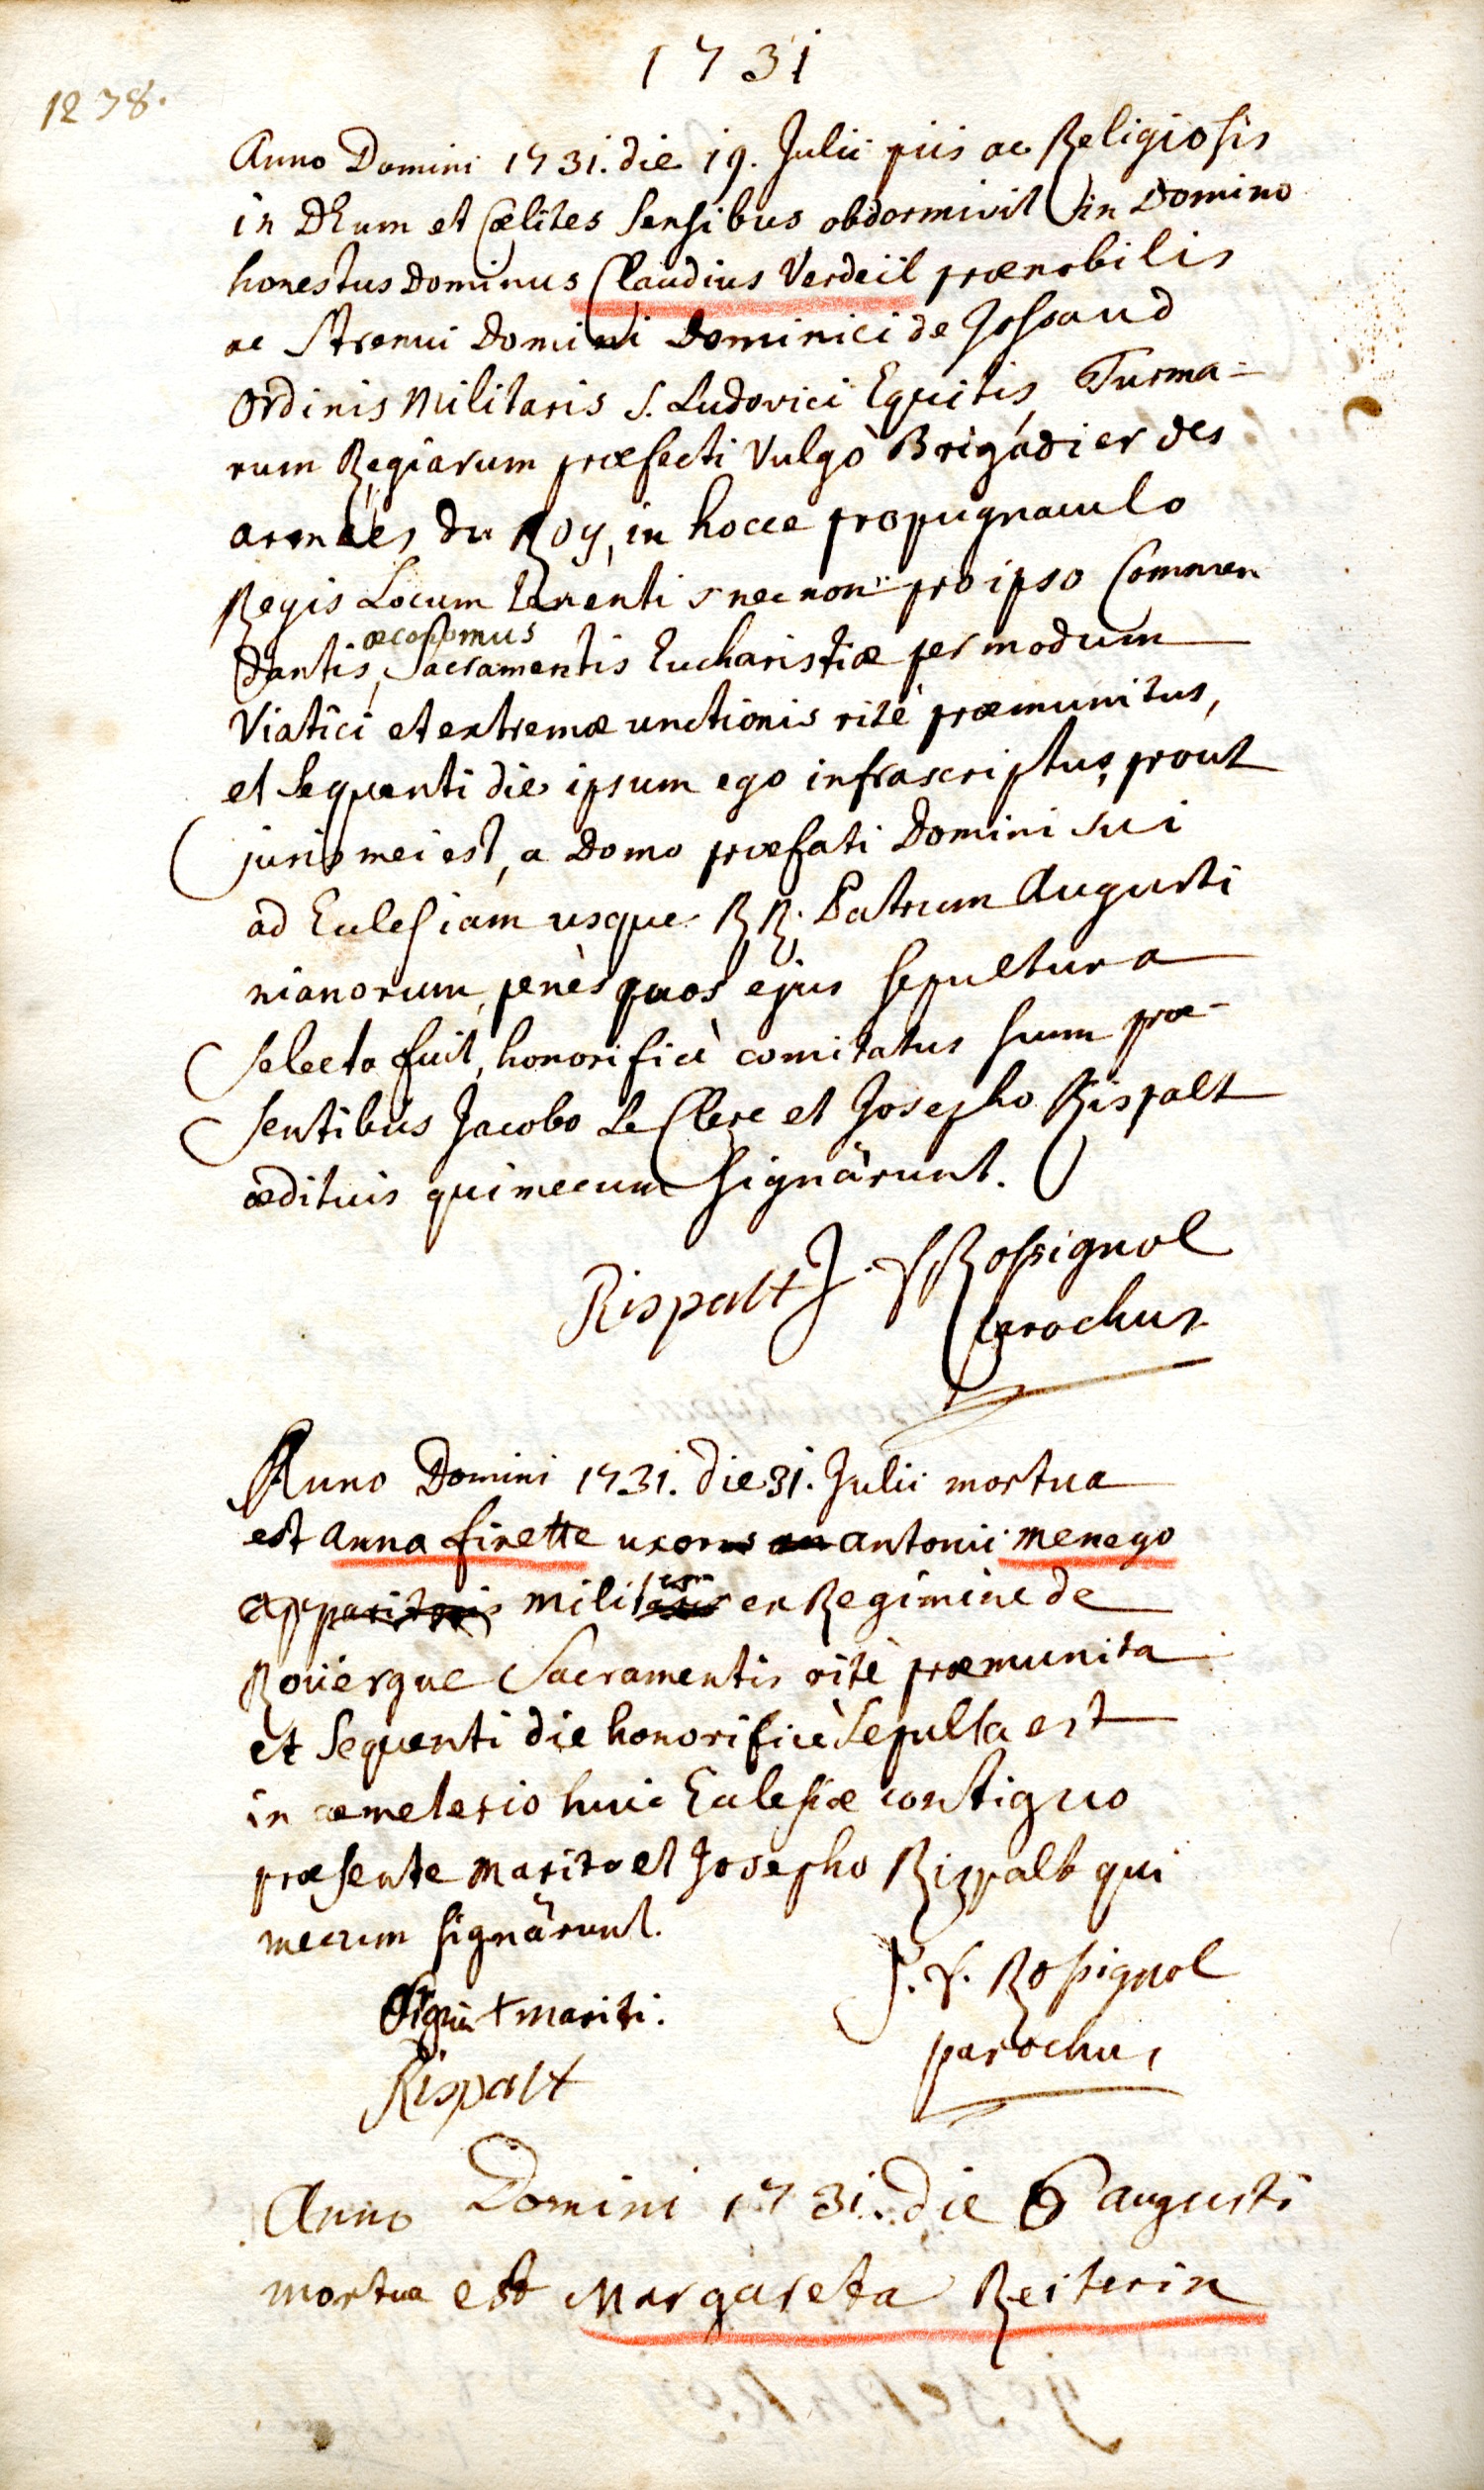 1731
1278.
Anno Domini 1731. die 19. Julii piis ac Religiosis
in DEum et Cælites sensibus obdormivit in Domino
honestus Dominus Claudius Verdeil prænobilis
ac Strenui Domini Dominici de Jossaud
Ordinis Militaris S. Ludovici Equitis, Turma=
rum Regiarum præfecti Vulgò Brigadier des
armées du Roy, in hocce propugnaculo
Regis Locum tenentis necnon pro ipso Commen
œconomus
dantis, Sacramentis Eucharistiæ per modum
Viatici et extremæ unctionis ritè præmunitus,
et sequenti die ipsum ego infrascriptus, prout
juris mei est, a Domo præfati Domini sui
ad Ecclesiam usque RR. Patrum Augusti
nianorum, penès quos ejus sepultura
selecta fuit, honorificè comitatus sum præ-
sentibus Jacobo Le Clerc et Josepho Rispalt
ædituis qui mecum signârunt.
Rispalt J. F. Rossignol
parochus
Anno Domini 1731. die 31. Julii mortua
est anna firette uxor antonii menego
militis ex Regimine de
Roüergue Sacramentis ritè præmunita
et sequenti die honorificè sepulta est
in cœmeterio huic Ecclesiæ contiguo
præsente marito et Josepho Rispalt qui
mecum signârunt.
Signū + mariti.
J. F. Rossignol
parochus
Rispalt
Anno Domini 1731. die 6 augusti
mortua est Margareta Reiterin